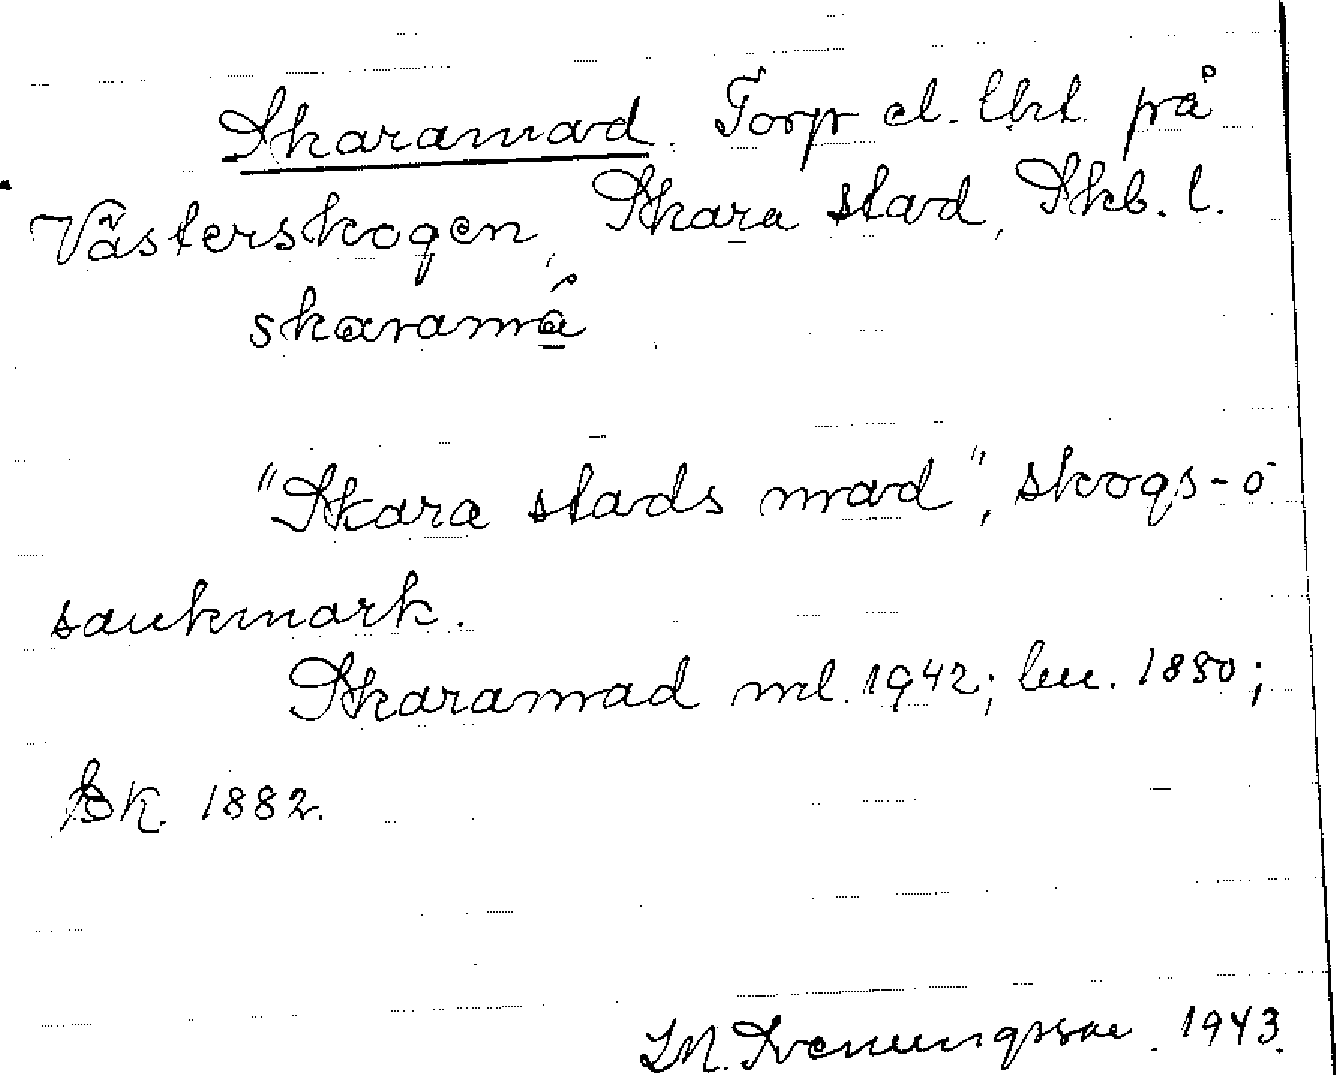 Skaramad. Torp el. lht på
Västerskogen, Skara stad, Skb. l.
skaramá
"Skara stads mad", skogs- o
sankmark.
Skaramad ml. 1942; hu. 1880;
EK. 1882.
M. Svenungsson. 1943.